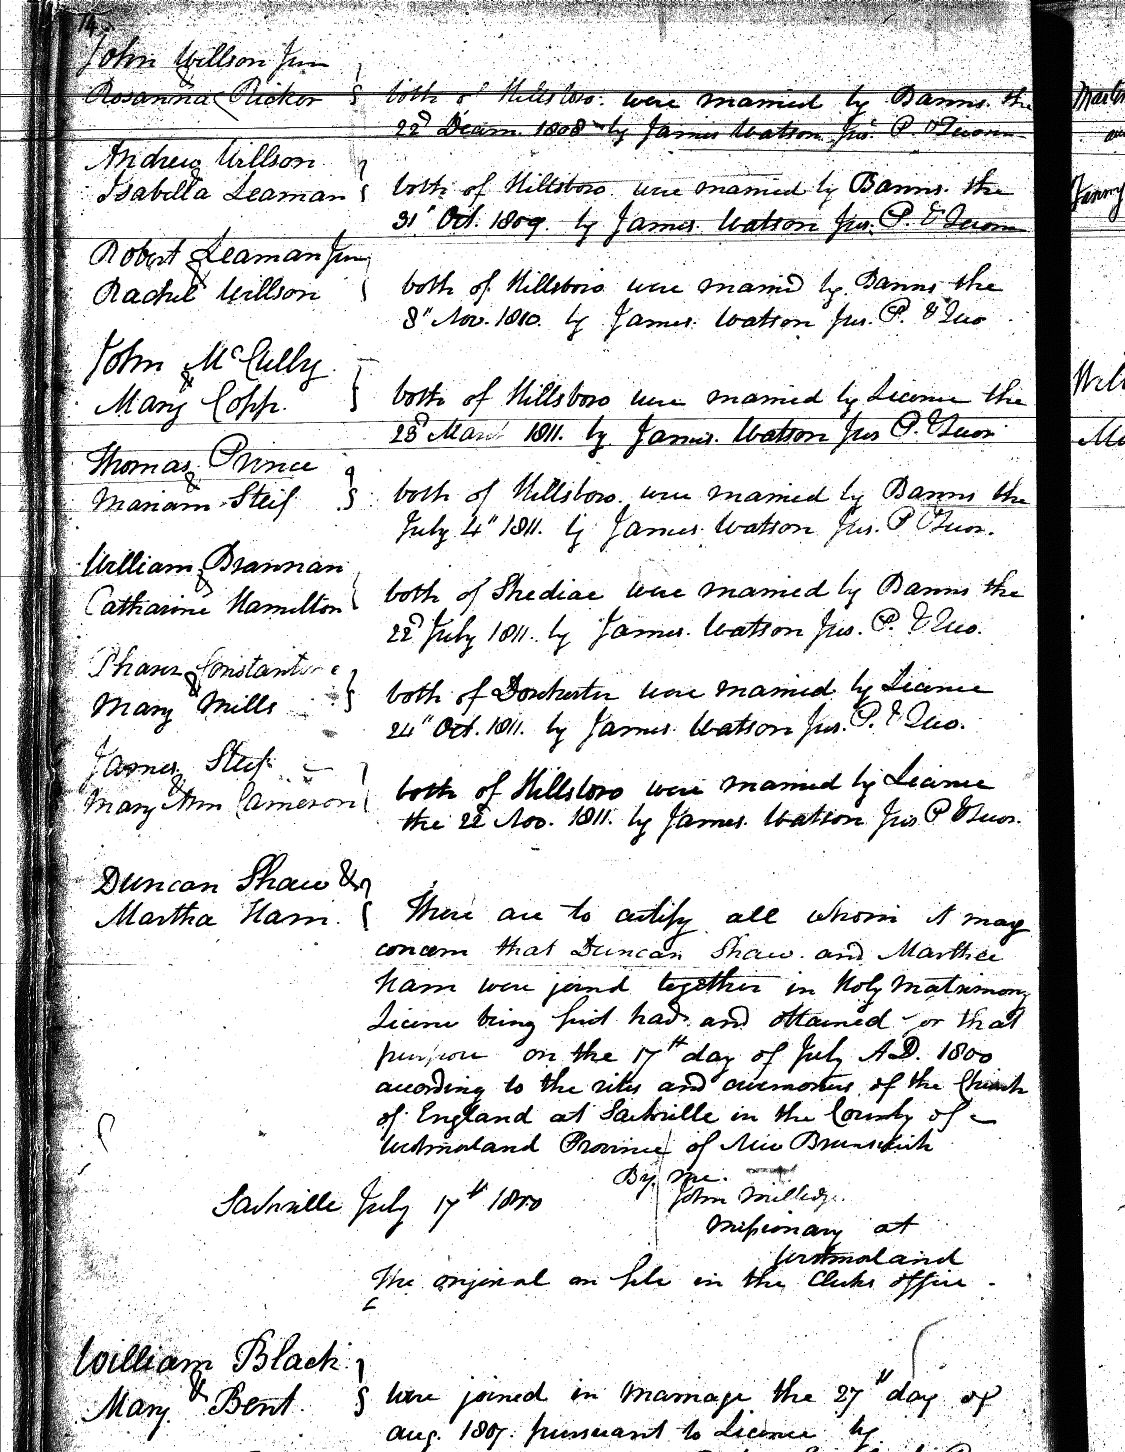 74
John Willson Jun
&
Rosanna Ricker } both of Hillsboro. were married by Banns. the
22d Decm. 1808 by James Watson Jus. P. & Quorm
Andrew Willson
&
Isabella Leaman } both of Hillsboro were married by Banns. the
31" Oct. 1809. by James. Watson Jus. P. & Quorm
Robert Leaman Jun
&
Rachel Willson } both of Hillsboro were married by Banns the
8" Nov. 1810. by James. Watson Jus. P. & Quo
John McCully
&
Mary Copp. } both of Hillsboro were married by Licence the
28d 1811. by James. Watson Jus P. & Quor
Thomas Prince
&
Mariam Steif } both of Hillsboro. were married by Banns the
July 4" 1811. by James. Watson Jus. P & Quor.
William Brannan
&
Catharine Hamilton } both of Shediac were married by Banns the
22d July 1811. by James. Watson Jus. P. & Quo.
Constantine
&
Mary Mills } both of Dorchester were married by Licence
24" Oct. 1811. by James Watson Jus. P. & Quo.
James Steif
&
Mary Ann Cameron } both of Hillsboro were married by Licence
the 22d Nov. 1811. by James. Watson Jus P & Quor.
Duncan Shaw & }
Martha Ham. These are to certify all whom it may
concern that Duncan Shaw. and Martha
Ham were joind together in Holy Matrimony
Licence being first had and obtained for that
purpose on the 17th day of July A.D. 1800
according to the rites and ceremonies of the Church
of England at Sackville in the County of
Westmorland Province of New Brunswick
By me.
John Milledge.
Sackville July 17th 1800
Missionary at
Westmorland
The original on file in the Clerks office.
William Black
&
Mary Bent. } Were joined in marriage the 27th day of
Aug. 1807. pursuant to Licence by